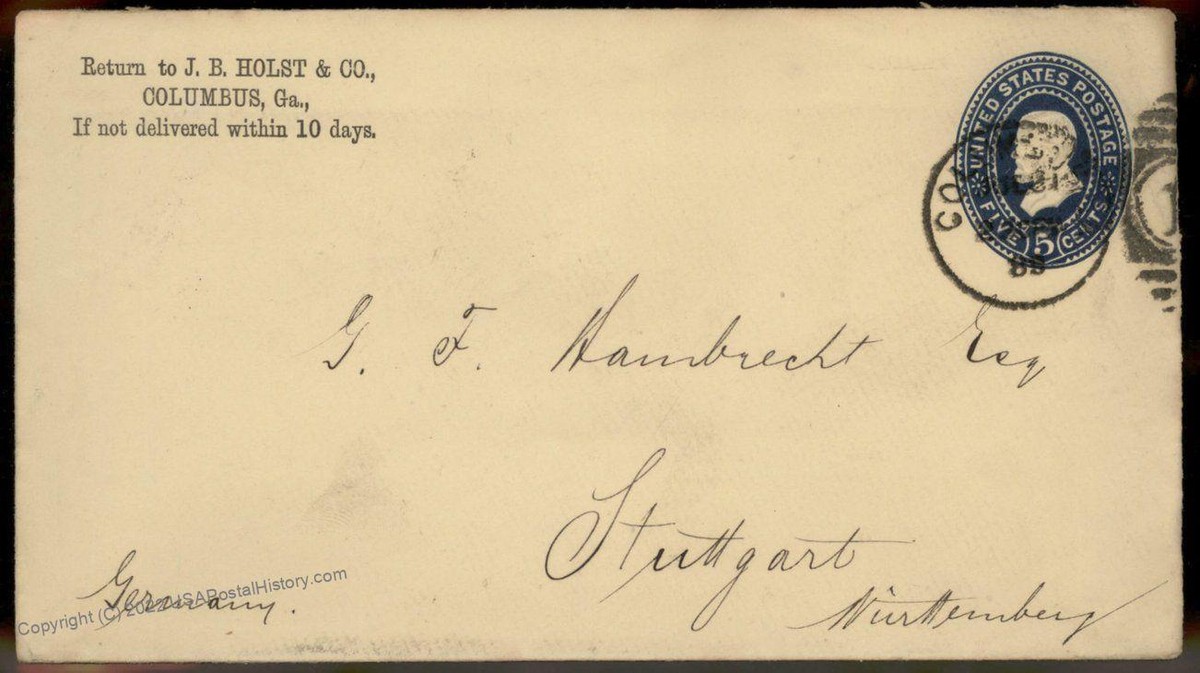 Return to J. B. HOLST & CO.,
COLUMBUS, Ga.,
If not delivered within 10 days.
UNITED STATES POSTAGE
FIVE 5 CENTS
CO
89
1
G. F. Hambrecht Esq
Stuttgart
Württemberg
Germany.
Copyright (C) 2022 USAPostalHistory.com